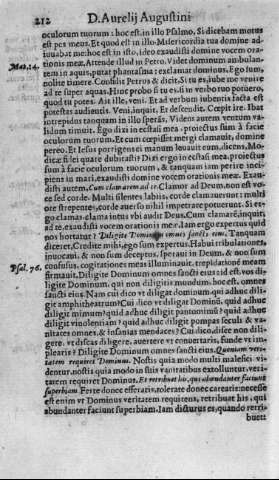 212 D. Aurelij Augustini
oculorum tuorum: hoc est, in illo Psalmo. Si dicebam motus
est pes meus. Et quod est in illo Misericordia tua domine ad-
iuuabat me: hoc est in isto, ideo exaudisti domine vocem orationis
Mat. 14.
meæ. Attende illud in Petro. Videt dominum ambulan-
tem in aquis, putat phantasma: exclamat dominus. Ego sum,
nolite timere. Confidit Petrus & dicit. Si tu es, iube me venire
ad te super aquas. Hinc probo si tu es, si in verbo tuo potuero,
quod tu potes. Ait ille, veni. Et ad verbum iubentis facta est
potestas audientis. Veni, inquit. Et descendit. Cœpit ire. Ibat
intrepidus tanquam in illo sperans. Videns autem ventum va-
lidum timuit. Ego dixi in ecstasi mea, proiectus sum à facie
oculorum tuorum. Et cum cœpisset mergi clamauit, domine
pereo. Et Iesus porrigens ei manum leuauit eum, dicens, Mo-
dicæ fidei quare dubitasti? Dixi ergo in ecstasi mea, proiectus
sum à facie oculorum tuorum, & tanquam iam perire inci-
piens in mari, exaudisti domine vocem orationis meæ. Exau-
disti autem, Cum clamarem ad te. Clamor ad Deum, non est vo-
ce sed corde. Multi silentes labiis, corde clamauerunt: multi
ore strepentes, corde auerso nihil impetrare potuerunt. Si er-
go clamas, clama intus vbi audit Deus. Cum clamarem, inquit,
ad te, exaudisti vocem orationis meæ. Iam ergo expertus quid
nos hortatur? Diligite Dominum omnes sancti eius. Tanquam
diceret, Credite mihi, ego sum expertus. Habui tribulationes,
inuocaui, & non sum deceptus, speraui in Deum, & non sum
Psal. 76.
confusus, cogitationes meas illuminauit, trepidationem meam
firmauit. Diligite Dominum omnes sancti eius: id est, vos di-
ligite Dominum, qui non diligitis mundum, hoc est, omnes
sancti eius. Nam cui dico vt diligat dominum, qui adhuc dili-
git amphitheatrum? Cui dico vt diligat Dominum, qui adhuc
diligit mimum? quid adhuc diligit pantomimum? qui adhuc
diligit vinolentiam? qui adhuc diligit pompas seculi & va-
nitates omnes, & insanias mendaces? Cui dico, disce non dili-
gere, vt discas diligere, auertere vt conuertaris, funde vt im-
plearis? Diligite Dominum omnes sancti eius. Quoniam veri-
tatem requiret Dominus. Nostis quia modo multi malefici vi-
dentur, nostis quia modo in suis vanitatibus extolluntur, veri-
tatem requiret Dominus. Et retribuet his, qui abundanter faciunt
superbiam. Ferte donec efferatis, tolerate donec careatis: necesse
est enim vt Dominus veritatem requirens, retribuat his, qui
abundanter faciunt superbiam. Iam dicturus es, quando retri-
buett